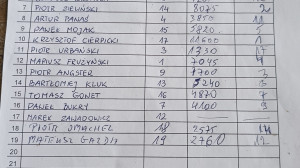 7 PIOTR ZIELIŃSKI 14 8075 2
8 ARTUR PANAŚ 4 3850 12
9 PAWEŁ MOJAK 15 5820 5
10 KRZYSZTOF CIERPICKI 17 11600 1
11 PIOTR URBAŃSKI 3 1330 17
12 MARIUSZ 1 7045 4
13 PIOTR ANGSTER 9 1700 3
14 BARTŁOMIEJ KLUK 13 5240
15 TOMASZ GONET 16 4870 7
16 PAWEŁ BUKRY 7 4100 9
17 MAREK ZAWADOWICZ 12
18 PIOTR SMACHEL 18 2575 14
19 MATEUSZ GAZDA 19 2760 12
20
21